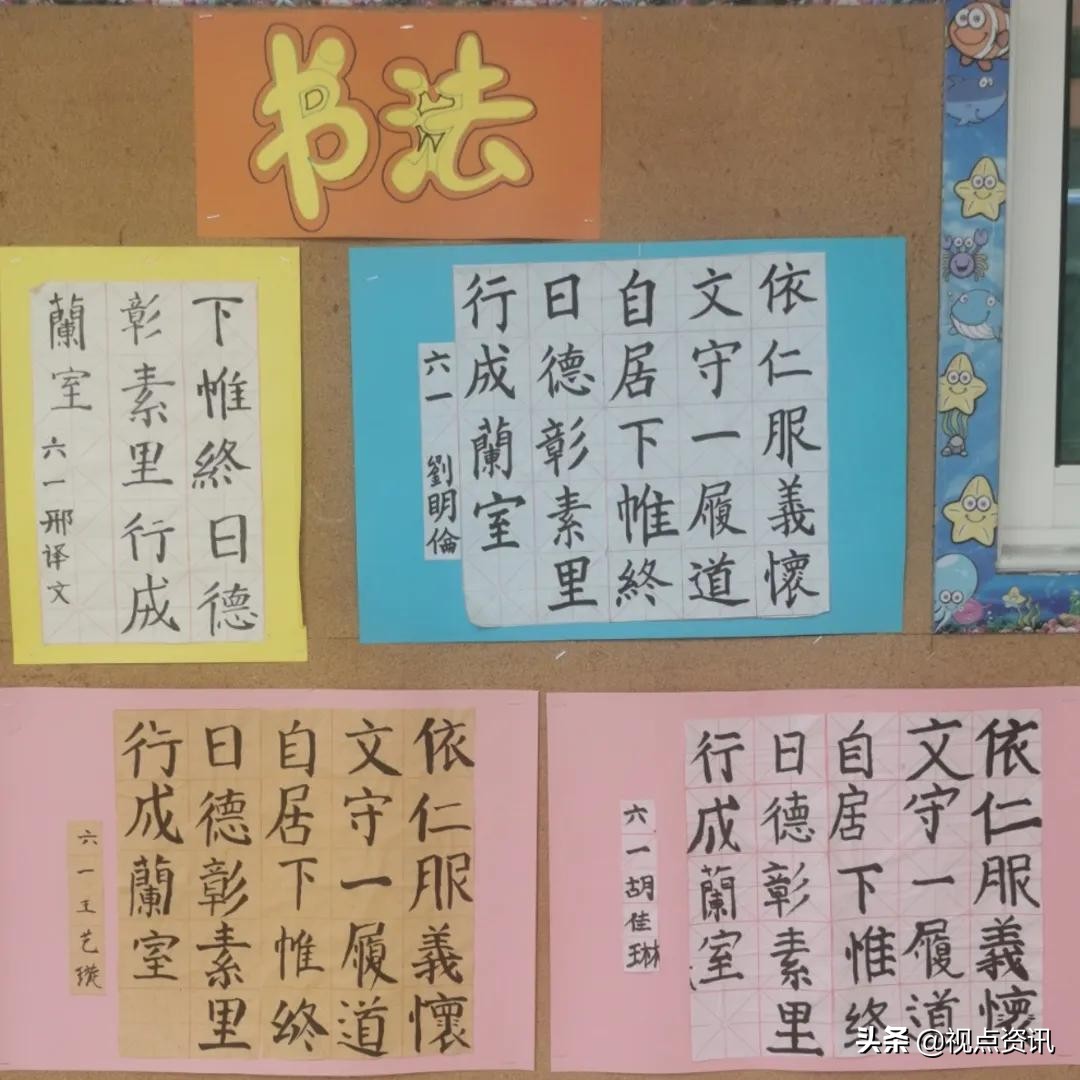 书法
下帷終日德
彰素里行成
蘭室
六一邢译文
依仁服義懷
文守一履道
自居下帷終
日德彰素里
行成蘭室
六一劉明倫
依仁服義懷
文守一履道
自居下帷终
日德彰素里
行成蘭室
六一王艺璇
依仁服義懷
文守一履道
自居下惟终
日德彰素里
行成蘭室
六一胡佳琳
头条 @视点资讯